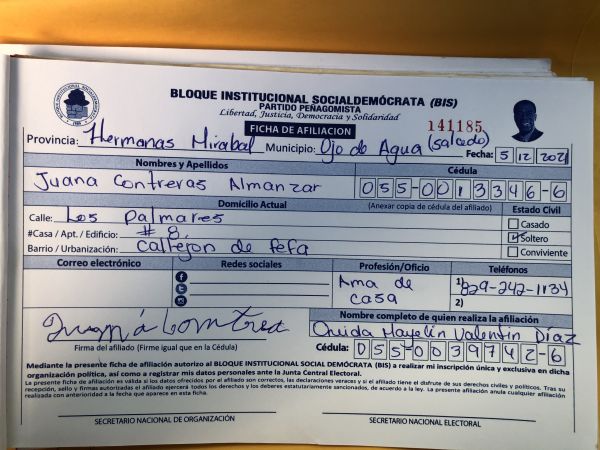 BLOQUE INSTITUCIONAL SOCIALDEMÓCRATA (BIS)
PARTIDO PEÑAGOMISTA
Libertad, Justicia, Democracia y Solidaridad
FICHA DE AFILIACION
141185
Provincia: Hermanas Mirabal Municipio: Ojo de Agua (salcedo) Fecha: 5 12 2021
Nombres y Apellidos Cédula
Juana Contreras Almanzar 055-0013346-6
Domicilio Actual (Anexar copia de cédula del afiliado) Estado Civil
Calle: Los Palmares Casado
#Casa / Apt. / Edificio: # 8 Soltero
Barrio / Urbanización: Callejon de fefa Conviviente
Correo electrónico Redes sociales Profesión/Oficio Teléfonos
Ama de casa 1) 829-242-1134
2)
Juana Contrera
Firma del afiliado (Firme igual que en la Cédula)
Nombre completo de quien realiza la afiliación
Mayelin Valentin Díaz
Cédula: 055-0039742-6
Mediante la presente ficha de afiliación autorizo al BLOQUE INSTITUCIONAL SOCIAL DEMÓCRATA (BIS) a realizar mi inscripción única y exclusiva en dicha
organización política, así como a registrar mis datos personales ante la Junta Central Electoral.
La presente ficha de afiliación es válida si los datos ofrecidos por el afiliado son correctos, las declaraciones veraces y si el afiliado tiene el disfrute de sus derechos civiles y políticos. Tras su
recepción, sello y firmas autorizadas el afiliado ejercerá todos los derechos y los deberes estatutariamente sancionados, de acuerdo a la ley. La presente afiliación anula cualquier afiliación
realizada con anterioridad a la fecha que aparece en esta ficha.
SECRETARIO NACIONAL DE ORGANIZACIÓN SECRETARIO NACIONAL ELECTORAL